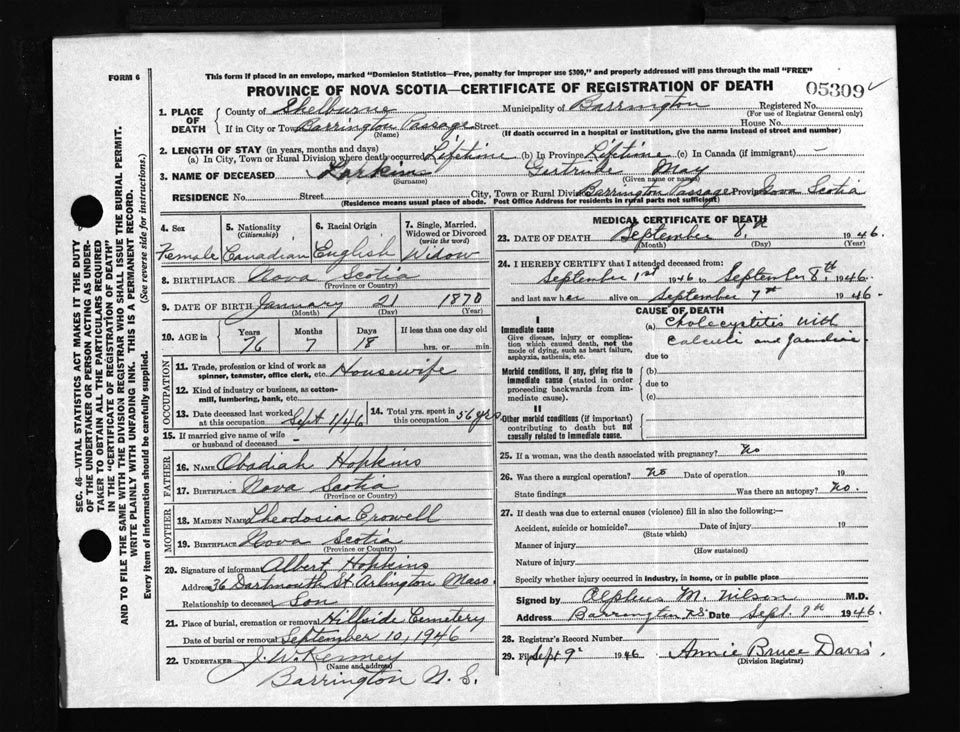 FORM 6
This form if placed in an envelope, marked "Dominion Statistics—Free, penalty for improper use $300," and properly addressed will pass through the mail "FREE"
PROVINCE OF NOVA SCOTIA—CERTIFICATE OF REGISTRATION OF DEATH
05309
1. PLACE OF DEATH
County of Shelburne Municipality of Barrington Registered No.
(For use of Registrar General only)
If in City or Town Barrington Passage Street House No.
(Name) (If death occurred in a hospital or institution, give the name instead of street and number)
2. LENGTH OF STAY (in years, months and days)
(a) In City, Town or Rural Division where death occurred Lifetime (b) In Province Lifetime (c) In Canada (if immigrant) –
3. NAME OF DECEASED Larkin Gertrude May
(Surname) (Given name or names)
RESIDENCE No. Street City, Town or Rural Div. Barrington Passage Province Nova Scotia
(Residence means usual place of abode. Post Office Address for residents in rural parts not sufficient)
4. Sex
Female
5. Nationality
(Citizenship)
Canadian
6. Racial Origin
English
7. Single, Married, Widowed or Divorced
(write the word)
Widow
8. BIRTHPLACE Nova Scotia
(Province or Country)
9. DATE OF BIRTH January 21 1870
(Month) (Day) (Year)
10. AGE in
Years Months Days If less than one day old
76 7 18 hrs. or min.
OCCUPATION
11. Trade, profession or kind of work as
spinner, teamster, office clerk, etc. Housewife
12. Kind of industry or business, as cotton-
mill, lumbering, bank, etc.
13. Date deceased last worked
at this occupation Sept 1/46
14. Total yrs. spent in
this occupation 56 yrs
15. If married give name of wife
or husband of deceased –
FATHER
16. NAME Obadiah Hopkins
17. BIRTHPLACE Nova Scotia
(Province or Country)
MOTHER
18. MAIDEN NAME Theodosia Crowell
19. BIRTHPLACE Nova Scotia
(Province or Country)
20. Signature of informant Albert Hopkins
Address 36 Dartmouth St. Arlington Mass
Relationship to deceased Son
21. Place of burial, cremation or removal Hillside Cemetery
Date of burial or removal September 10, 1946
22. UNDERTAKER J. W. Kenney
(Name and address)
Barrington N. S.
MEDICAL CERTIFICATE OF DEATH
23. DATE OF DEATH September 8th 1946.
(Month) (Day) (Year)
24. I HEREBY CERTIFY that I attended deceased from:
September 1st 1946 to September 8th 1946.
and last saw her alive on September 7th 1946
CAUSE OF DEATH
I
Immediate cause
Give disease, injury or complica-
tion which caused death, not the
mode of dying, such as heart failure,
asphyxia, asthenia, etc.
(a) Cholecystitis with
calculi and jaundice
due to
Morbid conditions, if any, giving rise to
immediate cause (stated in order
proceeding backwards from im-
mediate cause).
(b)
due to
(c)
II
Other morbid conditions (if important)
contributing to death but not
causally related to immediate cause.
25. If a woman, was the death associated with pregnancy? No
26. Was there a surgical operation? No Date of operation 19
State findings Was there an autopsy? No.
27. If death was due to external causes (violence) fill in also the following:—
Accident, suicide or homicide? Date of injury 19
(State which)
Manner of injury
(How sustained)
Nature of injury
Specify whether injury occurred in industry, in home, or in public place
Signed by Alpheus M. Wilson M.D.
Address Barrington N.S. Date Sept. 9th 1946.
28. Registrar's Record Number
29. Filed Sept 9 1946 Annie Bruce Davis
(Division Registrar)
SEC. 46—VITAL STATISTICS ACT MAKES IT THE DUTY
OF THE UNDERTAKER OR PERSON ACTING AS UNDER-
TAKER TO OBTAIN ALL THE PARTICULARS REQUIRED
IN THE "CERTIFICATE OF REGISTRATION OF DEATH"
AND TO FILE THE SAME WITH THE DIVISION REGISTRAR WHO SHALL ISSUE THE BURIAL PERMIT.
WRITE PLAINLY WITH UNFADING INK. THIS IS A PERMANENT RECORD.
Every item of information should be carefully supplied. (See reverse side for instructions.)